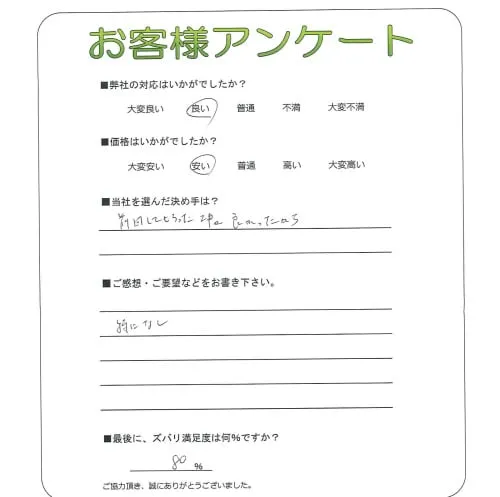 お客様アンケート
■弊社の対応はいかがでしたか？
大変良い 良い 普通 不満 大変不満
■価格はいかがでしたか？
大変安い 安い 普通 高い 大変高い
■当社を選んだ決め手は？
前回してもらった 良かったから
■ご感想・ご要望などをお書き下さい。
特になし
■最後に、ズバリ満足度は何%ですか？
80 %
ご協力頂き、誠にありがとうございました。